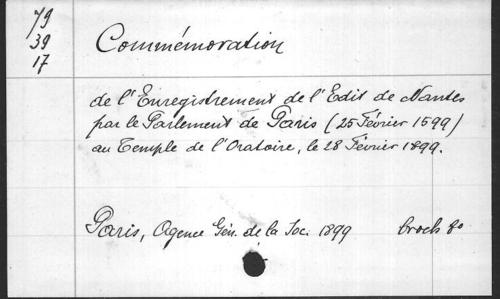 79
39
17
Commémoration
de l'Enregistrement de l'Edit de Nantes
par le Parlement de Paris (25 Février 1599)
au Temple de l'Oratoire, le 28 Février 1899.
Paris, Agence Gén. de la Soc. 1899 broch 8o